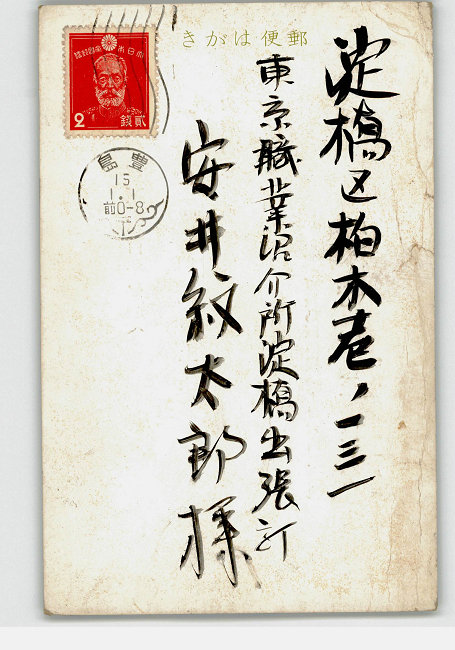 郵便はがき
淀橋区柏木壱ノ一三一
東京職業紹介所淀橋出張所
安井紋太郎様
大日本帝国郵便
2
貮銭
豊島
15
1.1
前0-8